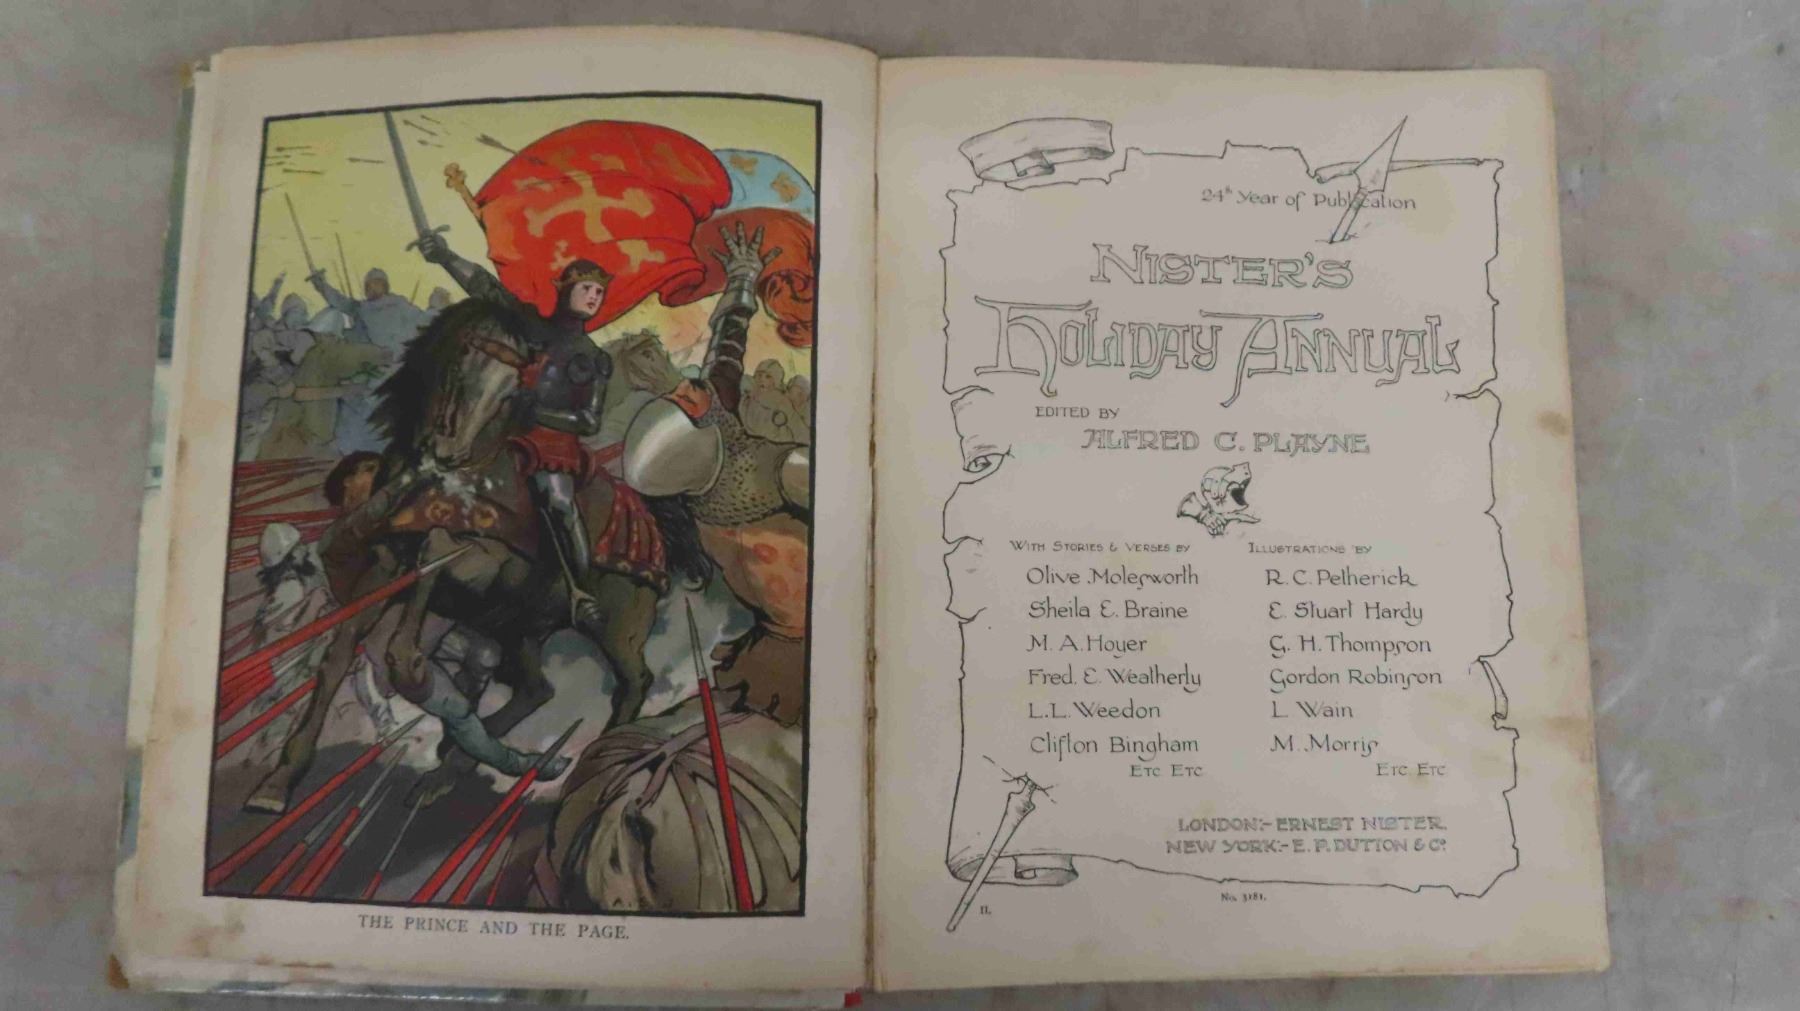 THE PRINCE AND THE PAGE.
24th Year of Publication
NISTER'S
HOLIDAY ANNUAL
EDITED BY
ALFRED C. PLAYNE
WITH STORIES & VERSES BY
Olive Molesworth
Sheila E. Braine
M. A. Hoyer
Fred. E. Weatherly
L.L. Weedon
Clifton Bingham
ETC ETC
ILLUSTRATIONS BY
R. C. Petherick
E. Stuart Hardy
G. H. Thompson
Gordon Robinson
L Wain
M. Morris
ETC. ETC
LONDON:- ERNEST NISTER.
NEW YORK:- E. P. DUTTON & Co.
No. 3181.
II.